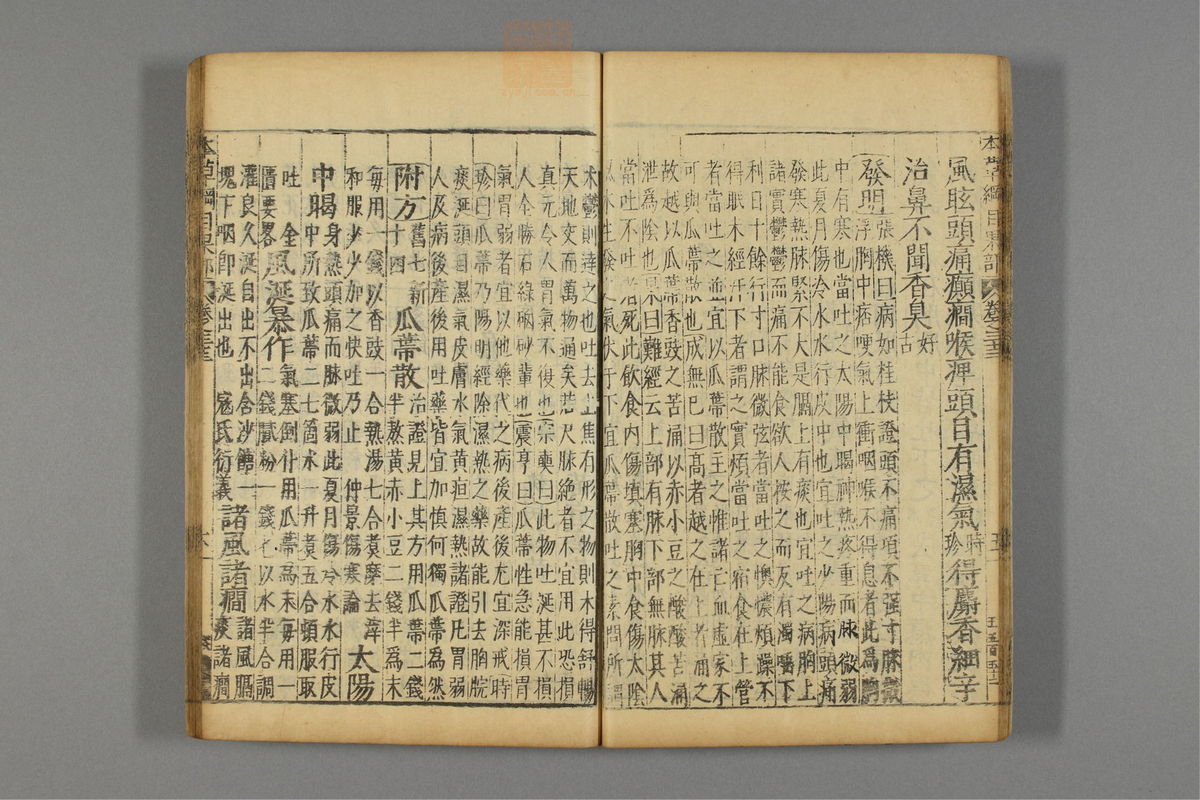 本草綱目果部 卷之三十三
風眩頭痛癲癇喉痹頭目有濕氣時珍得麝香細辛
治鼻不聞香臭好古
發明張機曰病如桂枝證頭不痛項不强寸脉微
浮胸中痞哽氣上衝咽喉不得息者此為胸
中有寒也當吐之太陽中暍神熱疼重而脉微弱
此夏月傷冷水水行皮中也宜吐之少陽病頭痛
發寒熱脉緊不大是膈上有痰也宜吐之病胸上
諸實鬱鬱而痛不能食欲人按之而反有濁唾下
利日十餘行寸口脉微弦者當吐之懊憹煩躁不
得眠未經汗下者謂之實煩當吐之宿食在上管
者當吐之並宜以瓜蒂散主之惟諸亡血虛家不
可與瓜蒂散也成無已曰高者越之在上者涌之
故越以瓜蒂香豉之苦涌以赤小豆之酸酸苦涌
泄爲陰也杲曰難經云上部有脉下部無脉其人
當吐不吐者死此飲食内傷填塞胸中食傷太陰
風木生發之氣伏于下宜瓜蒂散吐之素問所謂
木鬱則達之也吐去上焦有形之物則木得舒暢
天地交而萬物通矣若尺脉絶者不宜用此恐損
真元令人胃氣不復也宗奭曰此物吐涎甚不損
人全勝石綠硇砂輩也震亨曰瓜蒂性急能損胃
氣胃弱者宜以他藥代之病後產後尤宜深戒時
珍曰瓜蒂乃陽明經除濕熱之藥故能引去胸脘
痰涎頭目濕氣皮膚水氣黄疸濕熱諸證凡胃弱
人及病後產後用吐藥皆宜加慎何獨瓜蒂為然
附方舊七新十四瓜蒂散治證見上其方用瓜蒂二錢
半熬黄赤小豆二錢半為末
每用一錢以香豉一合熱湯七合煮糜去滓
和服少少加之快吐乃止 仲景傷寒論 太陽
中暍身熱頭痛而脉微弱此夏月傷冷水水行皮
中所致瓜蒂二七箇水一升煮五合頓服取
吐 金匱要畧風涎暴作氣塞倒仆用瓜蒂為末每用一
二錢膩粉一錢匕以水半合調
灌良久涎自出不出含沙餹一
塊下咽即涎出也 寇氏衍義諸風諸癇諸風膈痰諸癇
本草綱目果部 卷之三十三